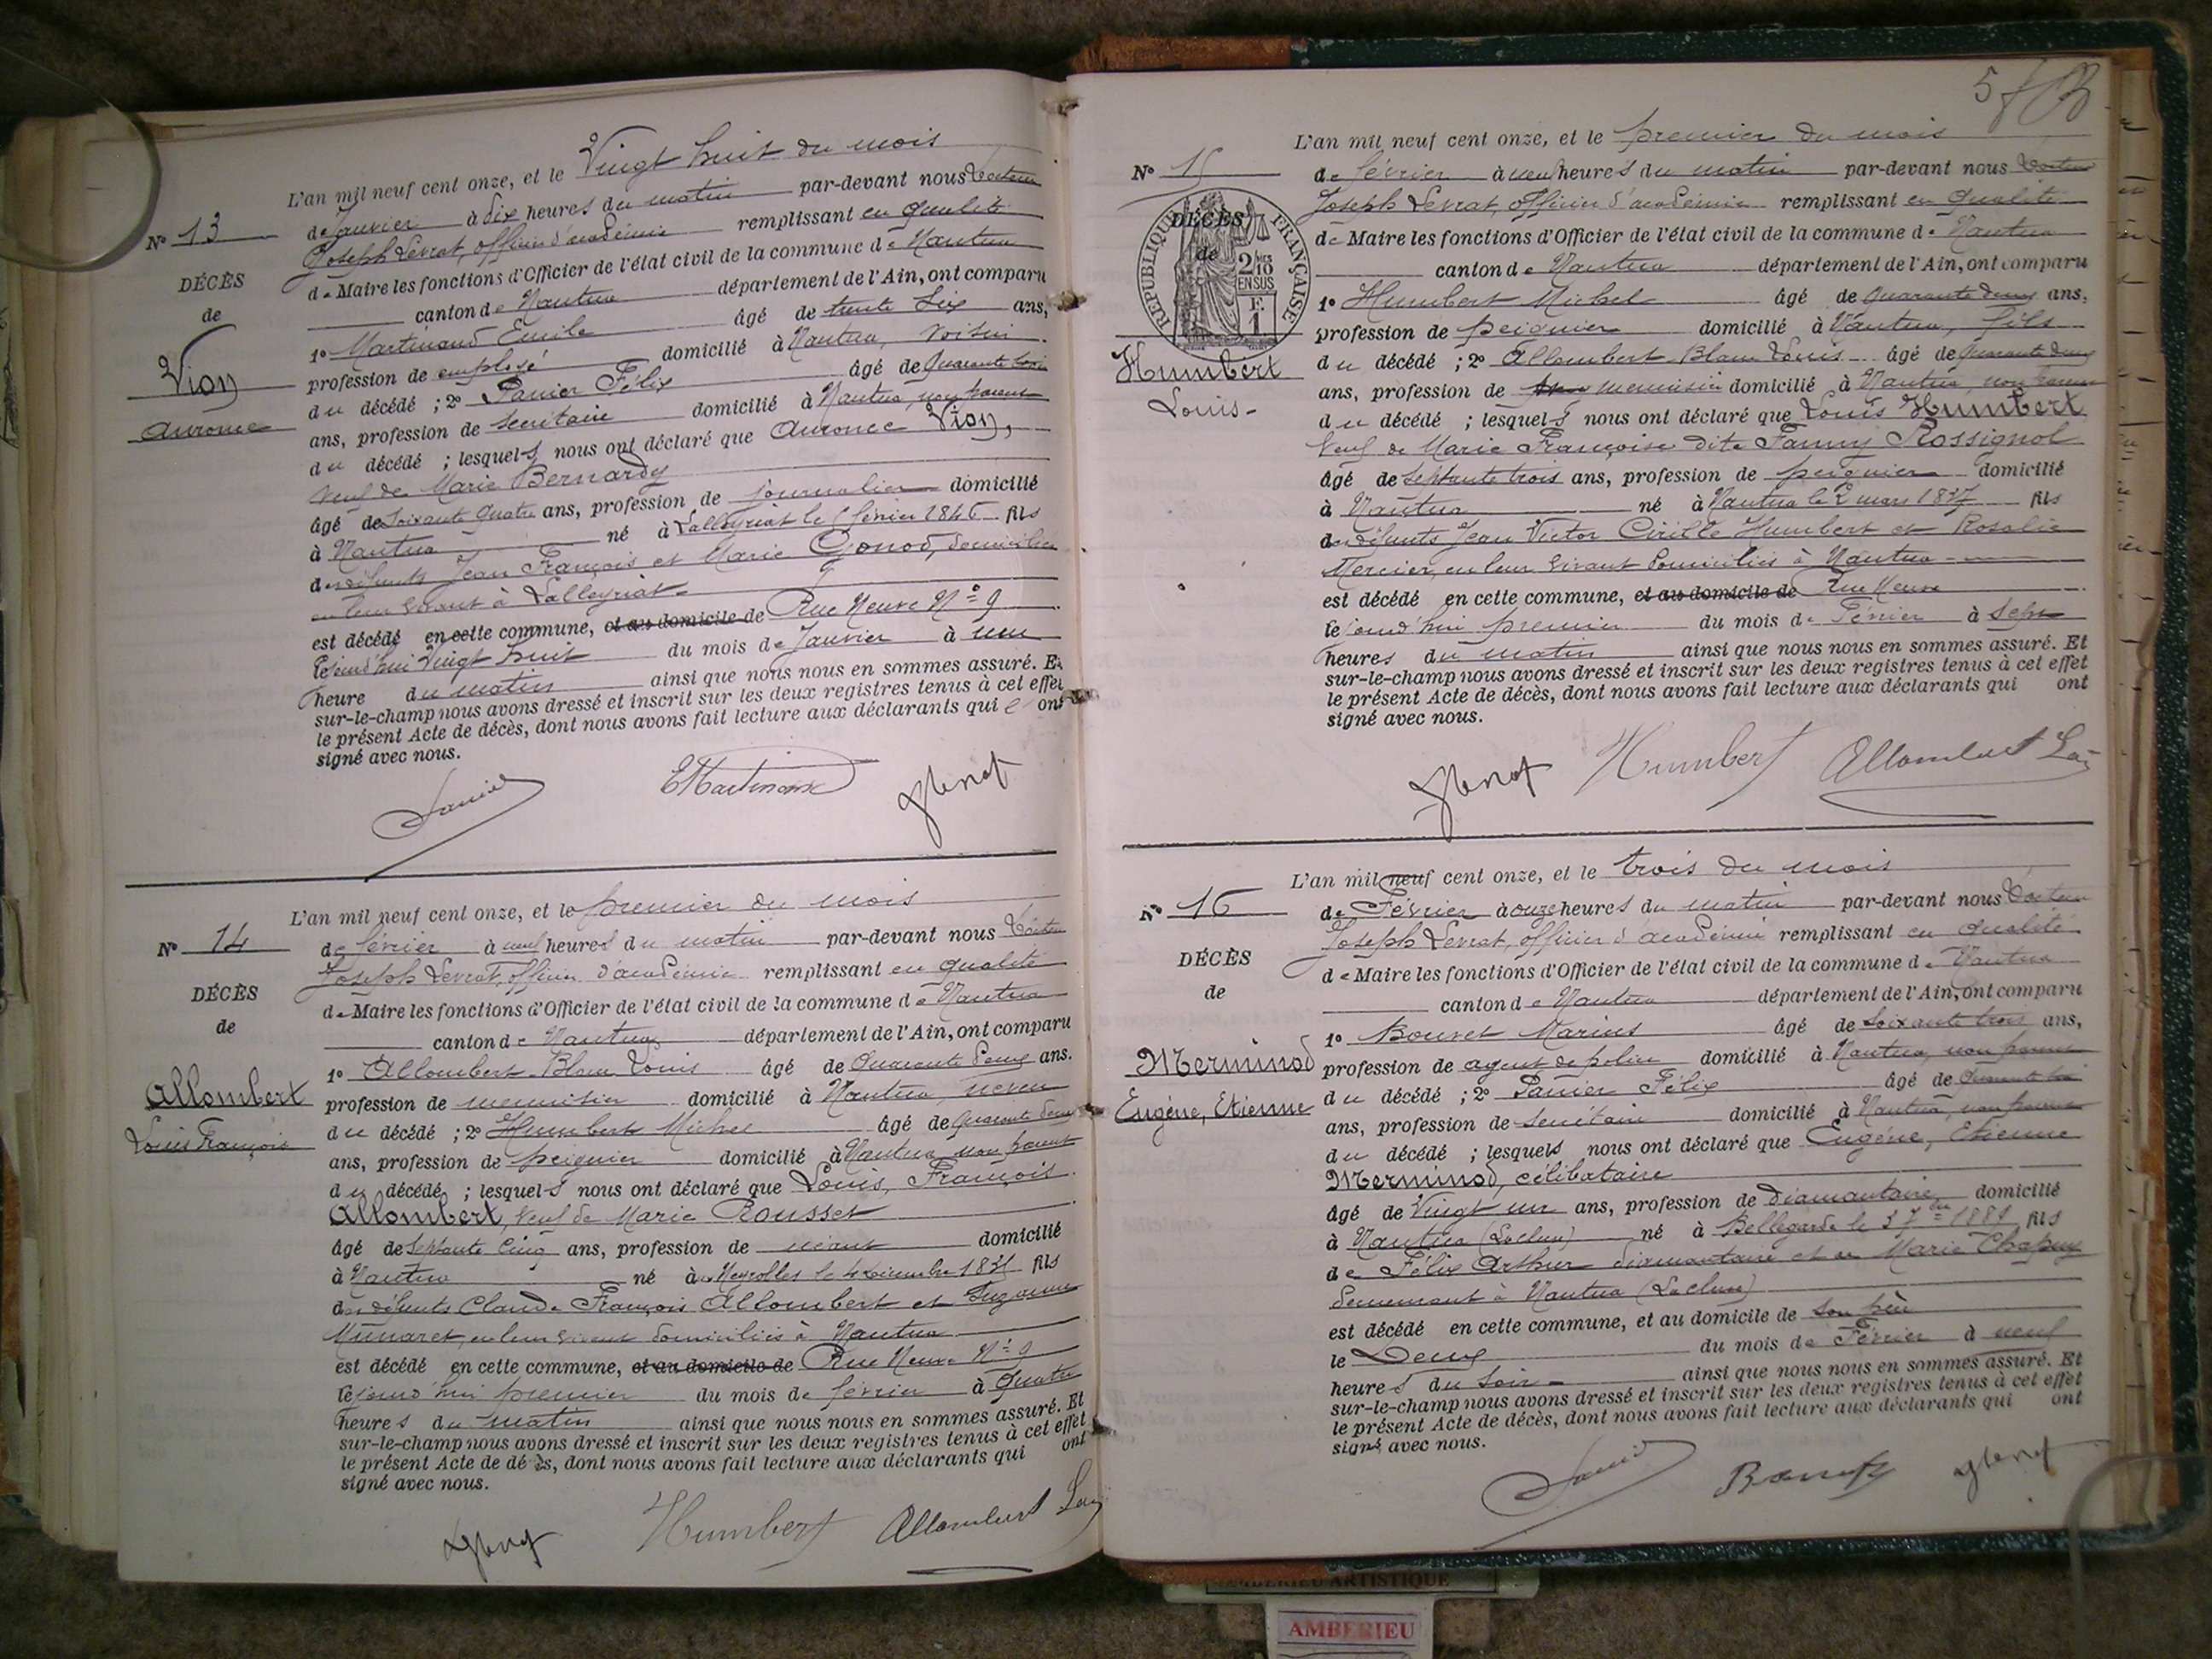 L'an mil neuf cent onze, et le Vingt huit du mois
de Janvier à dix heures du matin par-devant nous Docteur
Joseph Levrat, officier d'académie remplissant en qualité
de Maire les fonctions d'Officier de l'état civil de la commune de Nantua
canton de Nantua département de l'Ain, ont comparu
1º Martinand Emile âgé de trente six ans,
profession de employé domicilié à Nantua, voisin
du décédé ; 2º Panier Félix âgé de Quarante trois
ans, profession de secrétaire domicilié à Nantua, non parent
du décédé ; lesquels nous ont déclaré que Auronce Vion,
veuf de Marie Bernardy
âgé de Soixante quatre ans, profession de journalier domicilié
à Nantua né à Lalleyriat le février 1846 fils
de défunts Jean François et Marie Gonod, domiciliés
en leur vivant à Lalleyriat
est décédé en cette commune, et au domicile de Rue Neuve Nº 9
le jourd'hui Vingt huit du mois de Janvier à une
heure du matin ainsi que nous nous en sommes assuré. Et
sur-le-champ nous avons dressé et inscrit sur les deux registres tenus à cet effet
le présent Acte de décès, dont nous avons fait lecture aux déclarants qui ont
signé avec nous.
Nº 13
DÉCÈS
de
Vion
Auronce
Panier EMartinand JLevrat
L'an mil neuf cent onze, et le premier du mois
de février à neuf heures du matin par-devant nous Docteur
Joseph Levrat, officier d'académie remplissant en qualité
de Maire les fonctions d'Officier de l'état civil de la commune de Nantua
canton de Nantua département de l'Ain, ont comparu
1º Allombert-Blanc Louis âgé de Quarante deux ans.
profession de menuisier domicilié à Nantua, neveu
du décédé ; 2º Humbert Michel âgé de Quarante deux
ans, profession de peignier domicilié à Nantua non parent
du décédé ; lesquels nous ont déclaré que Louis, François
Allombert, veuf de Marie Rousset
âgé de Septante cinq ans, profession de néant domicilié
à Nantua né à Neyrolles le 4 décembre 1835 fils
de défunts Claude François Allombert et Suzanne
Munaret, en leur vivant domiciliés à Nantua
est décédé en cette commune, et au domicile de Rue Neuve Nº 9
le jourd'hui premier du mois de février à Quatre
heures du matin ainsi que nous nous en sommes assuré. Et
sur-le-champ nous avons dressé et inscrit sur les deux registres tenus à cet effet
le présent Acte de décès, dont nous avons fait lecture aux déclarants qui ont
signé avec nous.
Nº 14
DÉCÈS
de
Allombert
Louis François
JLevrat Humbert Allombert
5
L'an mil neuf cent onze, et le premier du mois
de février à neuf heures du matin par-devant nous Docteur
Joseph Levrat, officier d'académie remplissant en qualité
de Maire les fonctions d'Officier de l'état civil de la commune de Nantua
canton de Nantua département de l'Ain, ont comparu
1º Humbert Michel âgé de quarante deux ans,
profession de peignier domicilié à Nantua, fils
du décédé ; 2º Allombert-Blanc Louis âgé de quarante deux
ans, profession de menuisier domicilié à Nantua, non parent
du décédé ; lesquels nous ont déclaré que Louis Humbert
veuf de Marie Françoise dite Fanny Rossignol
âgé de Septante trois ans, profession de peignier domicilié
à Nantua né à Nantua le 2 mars 1837 fils
de défunts Jean Victor Cirille Humbert et Rosalie
Mercier, en leur vivant domiciliés à Nantua
est décédé en cette commune, et au domicile de Rue Neuve
le jourd'hui premier du mois de Février à Sept
heures du matin ainsi que nous nous en sommes assuré. Et
sur-le-champ nous avons dressé et inscrit sur les deux registres tenus à cet effet
le présent Acte de décès, dont nous avons fait lecture aux déclarants qui ont
signé avec nous.
Nº 15
DÉCÈS
de
RÉPUBLIQUE FRANÇAISE
2/10
EN SUS
F.
1
Humbert
Louis
JLevrat Humbert Allombert
L'an mil neuf cent onze, et le trois du mois
de Février à onze heures du matin par-devant nous Docteur
Joseph Levrat, officier d'académie remplissant en qualité
de Maire les fonctions d'Officier de l'état civil de la commune de Nantua
canton de Nantua département de l'Ain, ont comparu
1º Bouvet Marius âgé de Soixante trois ans,
profession de agent de police domicilié à Nantua, non parent
du décédé ; 2º Panier Félix âgé de Quarante trois
ans, profession de secrétaire domicilié à Nantua, non parent
du décédé ; lesquels nous ont déclaré que Eugène, Etienne
Merminod, célibataire
âgé de Vingt un ans, profession de diamantaire, domicilié
à Nantua (Lacluse) né à Bellegarde le 1889 fils
de Félix Arthur diamantaire et de Marie Chapuy
demeurant à Nantua (Lacluse)
est décédé en cette commune, et au domicile de son père
le Deux du mois de Février à neuf
heures du soir ainsi que nous nous en sommes assuré. Et
sur-le-champ nous avons dressé et inscrit sur les deux registres tenus à cet effet
le présent Acte de décès, dont nous avons fait lecture aux déclarants qui ont
signé avec nous.
Nº 16
DÉCÈS
de
Merminod
Eugène, Etienne
Panier Bouvet JLevrat
AMBERIEU ARTISTIQUE
AMBERIEU